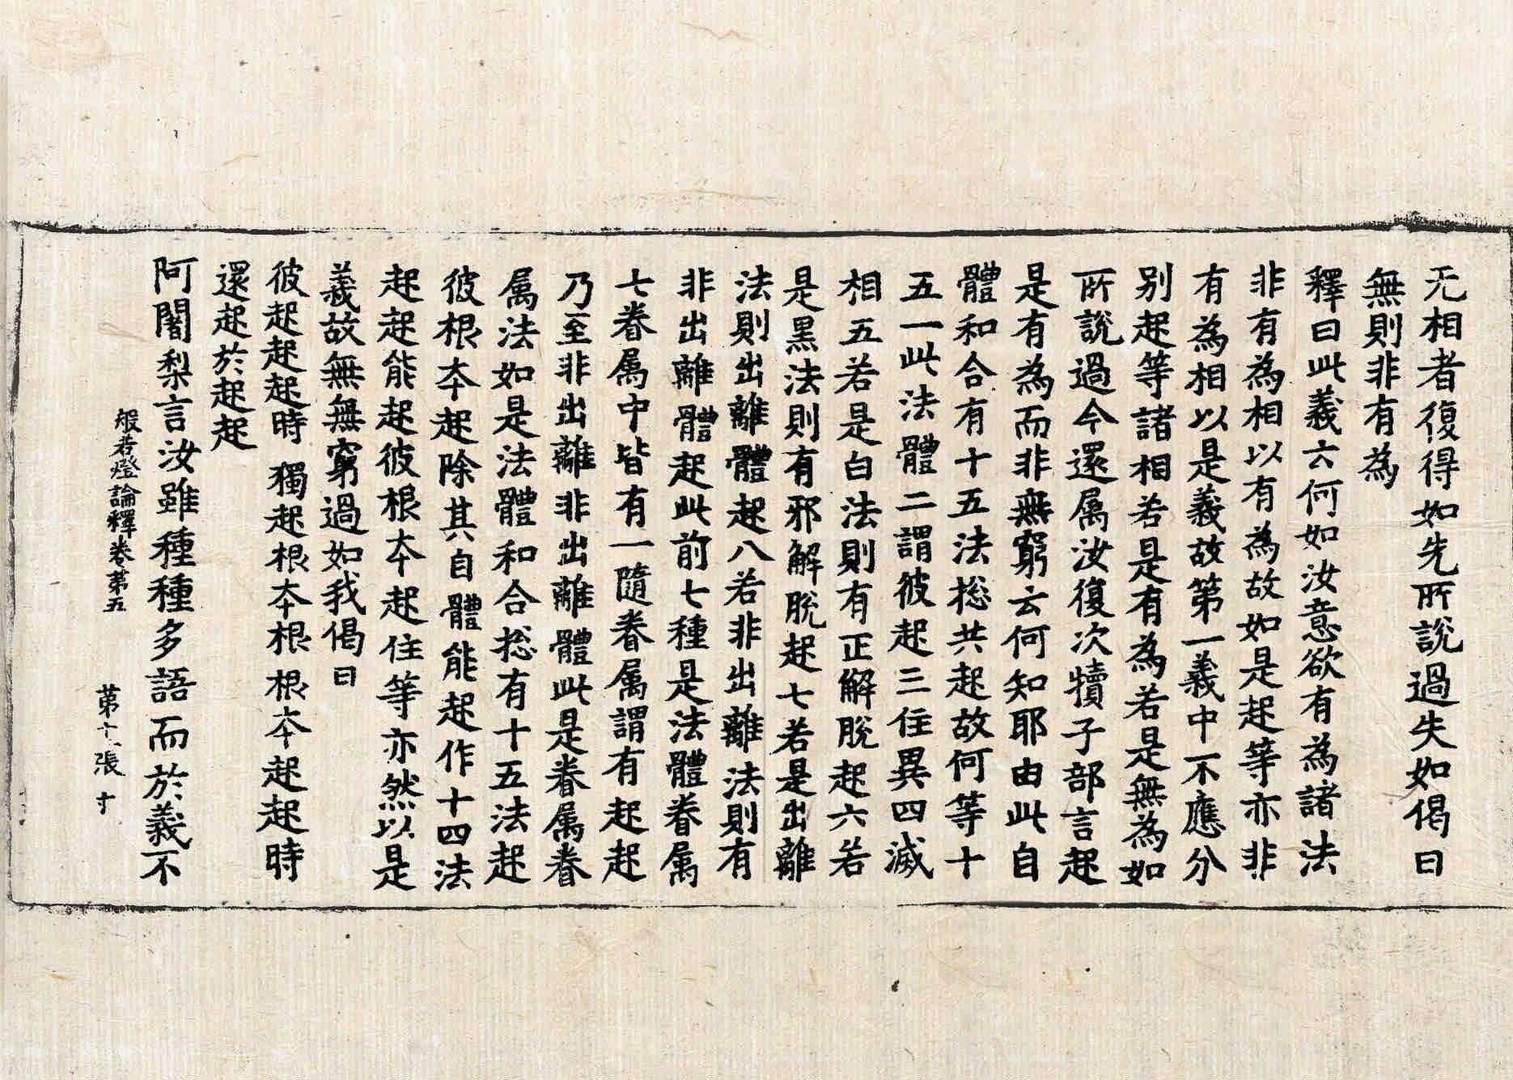 无相者復得如先所說過失如偈曰
無則非有為
釋曰此義云何如汝意欲有為諸法
非有為相以有為故如是起等亦非
有為相以是義故第一義中不應分
别起等諸相若是有為若是無為如
所說過今還属汝復次犢子部言起
是有為而非無窮云何知耶由此自
體和合有十五法揔共起故何等十
五一此法體二謂彼起三住異四滅
相五若是白法則有正解脫起六若
是黑法則有邪解脫起七若是出離
法則出離體起八若非出離法則有
非出離體起此前七種是法體眷属
七眷属中皆有一隨眷属謂有起起
乃至非出離非出離體此是眷属眷
属法如是法體和合揔有十五法起
彼根夲起除其自體能起作十四法
起起能起彼根夲起住等亦然以是
義故無無窮過如我偈曰
彼起起起時 獨起根夲根 根夲起起時
還起於起起
阿闍梨言汝雖種種多語而於義不
般若燈論釋卷第五 第十一張 寸